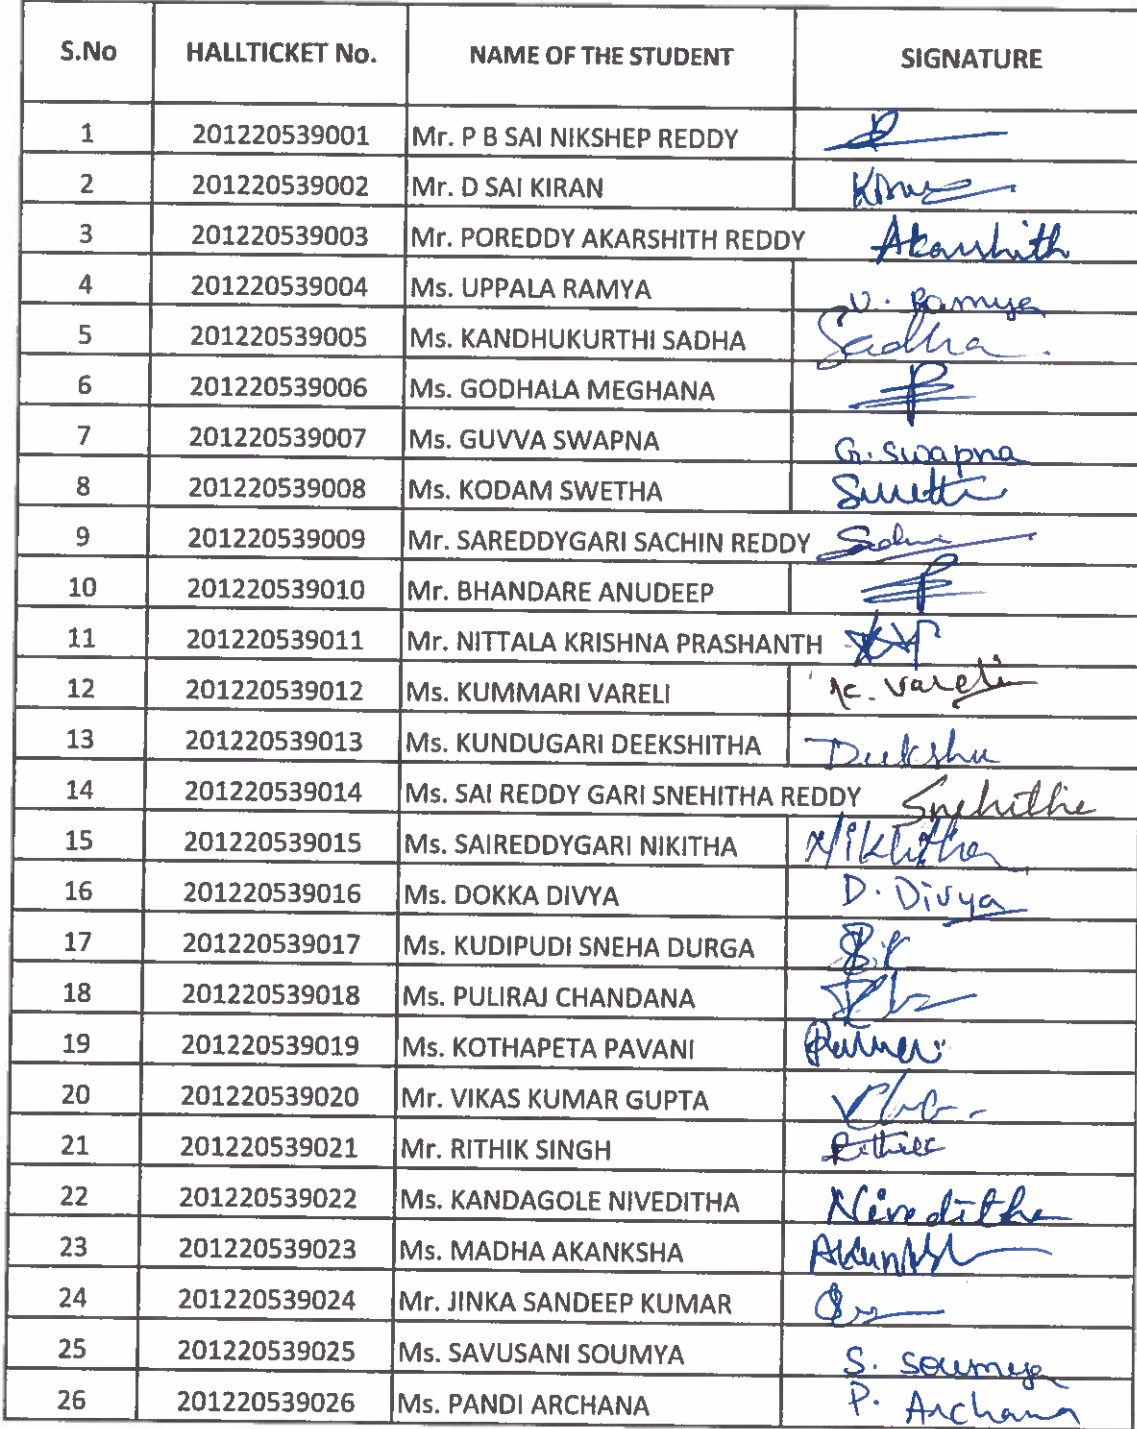 S.No HALLTICKET No. NAME OF THE STUDENT SIGNATURE
1 201220539001 Mr. P B SAI NIKSHEP REDDY
2 201220539002 Mr. D SAI KIRAN
3 201220539003 Mr. POREDDY AKARSHITH REDDY Akarshith
4 201220539004 Ms. UPPALA RAMYA U. Ramya
5 201220539005 Ms. KANDHUKURTHI SADHA Sadha
6 201220539006 Ms. GODHALA MEGHANA
7 201220539007 Ms. GUVVA SWAPNA G. Swapna
8 201220539008 Ms. KODAM SWETHA
9 201220539009 Mr. SAREDDYGARI SACHIN REDDY
10 201220539010 Mr. BHANDARE ANUDEEP
11 201220539011 Mr. NITTALA KRISHNA PRASHANTH
12 201220539012 Ms. KUMMARI VARELI K. Vareli
13 201220539013 Ms. KUNDUGARI DEEKSHITHA
14 201220539014 Ms. SAI REDDY GARI SNEHITHA REDDY Snehitha
15 201220539015 Ms. SAIREDDYGARI NIKITHA
16 201220539016 Ms. DOKKA DIVYA D. Divya
17 201220539017 Ms. KUDIPUDI SNEHA DURGA
18 201220539018 Ms. PULIRAJ CHANDANA
19 201220539019 Ms. KOTHAPETA PAVANI
20 201220539020 Mr. VIKAS KUMAR GUPTA
21 201220539021 Mr. RITHIK SINGH Rithik
22 201220539022 Ms. KANDAGOLE NIVEDITHA Niveditha
23 201220539023 Ms. MADHA AKANKSHA
24 201220539024 Mr. JINKA SANDEEP KUMAR
25 201220539025 Ms. SAVUSANI SOUMYA S. Soumya
26 201220539026 Ms. PANDI ARCHANA P. Archana